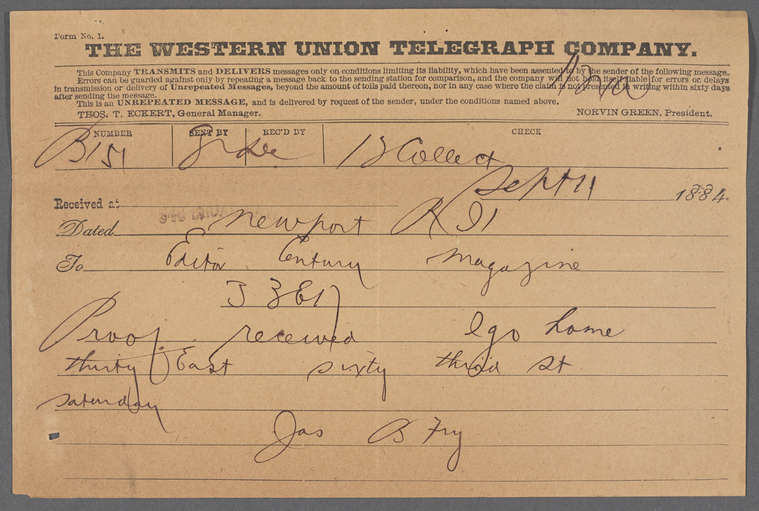 Form No. 1.
THE WESTERN UNION TELEGRAPH COMPANY.
This Company TRANSMITS and DELIVERS messages only on conditions limiting its liability, which have been assented to by the sender of the following message.
Errors can be guarded against only by repeating a message back to the sending station for comparison, and the company will not hold itself liable for errors or delays
in transmission or delivery of Unrepeated Messages, beyond the amount of tolls paid thereon, nor in any case where the claim is not presented in writing within sixty days
after sending the message.
This is an UNREPEATED MESSAGE, and is delivered by request of the sender, under the conditions named above.
THOS. T. ECKERT, General Manager. NORVIN GREEN, President.
NUMBER SENT BY REC'D BY CHECK
B151 13 Collect
Sept 11 1884
Received at
Dated Newport R I
To Editor Century Magazine
33 E 17
Proof received I go home
thirty East sixty third st
saturday
Jas B Fry